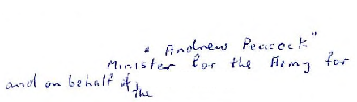 "Andrew Peacock"
Minister for the Army for
and on behalf of the